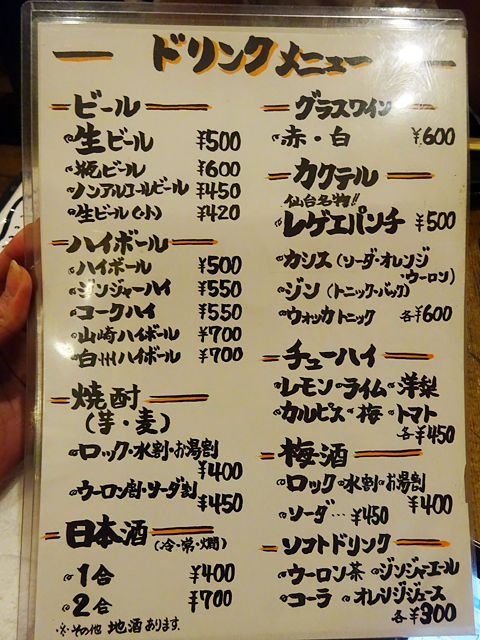 ドリンクメニュー
ビール
生ビール ¥500
瓶ビール ¥600
ノンアルコールビール ¥450
生ビール(小) ¥420
ハイボール
ハイボール ¥500
ジンジャーハイ ¥550
コークハイ ¥550
山崎ハイボール ¥700
白州ハイボール ¥700
焼酎
(芋・麦)
ロック・水割・お湯割
¥400
ウーロン割・ソーダ割
¥450
日本酒(冷・常・燗)
1合 ¥400
2合 ¥700
※その他 地酒あります。
グラスワイン
赤・白 ¥600
カクテル
仙台名物!!
レゲエパンチ ¥500
カシス(ソーダ・オレンジ
・ウーロン)
ジン(トニック・バック)
ウォッカトニック 各¥600
チューハイ
レモン ライム 洋梨
カルピス 梅 トマト
各¥450
梅酒
ロック 水割 お湯割
¥400
ソーダ…¥450
ソフトドリンク
ウーロン茶 ジンジャエール
コーラ オレンジジュース
各¥300